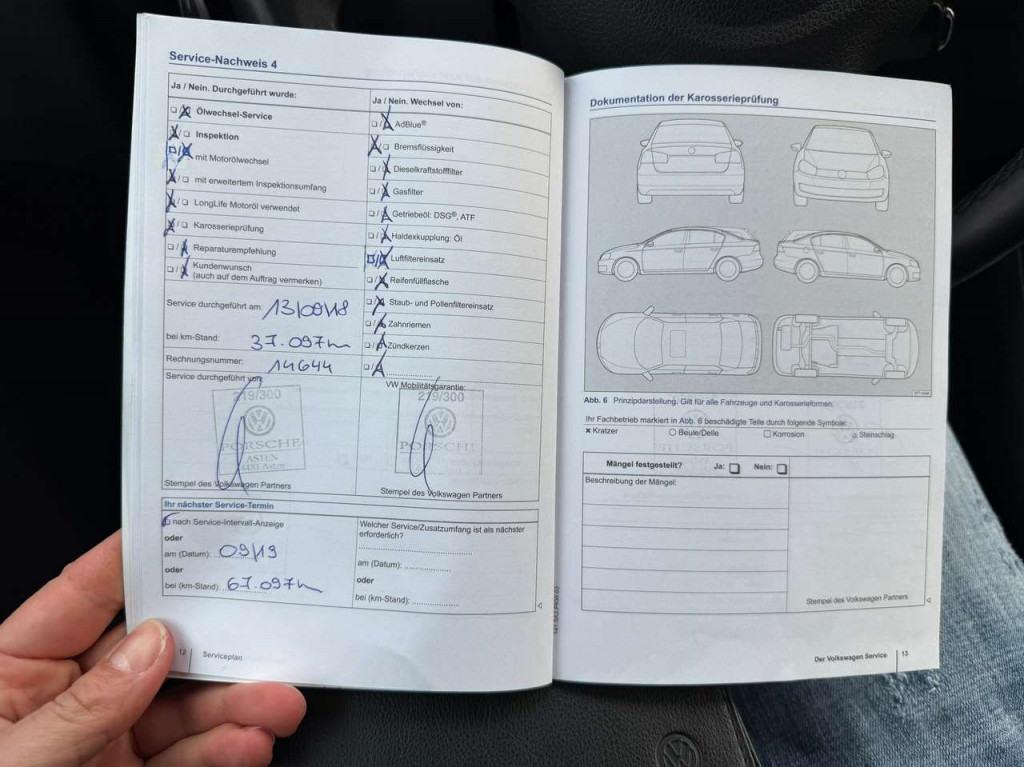 Service-Nachweis 4
Ja / Nein. Durchgeführt wurde:
Ölwechsel-Service
Inspektion
mit Motorölwechsel
mit erweitertem Inspektionsumfang
LongLife Motoröl verwendet
Karosserieprüfung
Reparaturempfehlung
Kundenwunsch
(auch auf dem Auftrag vermerken)
Service durchgeführt am: 13/09/18
bei km-Stand: 37.097km
Rechnungsnummer: 14644
Service durchgeführt von:
219/300
PORSCHE
ASTEN
4481 Asten
Stempel des Volkswagen Partners
Ja / Nein. Wechsel von:
AdBlue®
Bremsflüssigkeit
Dieselkraftstofffilter
Gasfilter
Getriebeöl: DSG®, ATF
Haldexkupplung: Öl
Luftfiltereinsatz
Reifenfüllflasche
Staub- und Pollenfiltereinsatz
Zahnriemen
Zündkerzen
VW Mobilitätsgarantie:
219/300
PORSCHE
Stempel des Volkswagen Partners
Ihr nächster Service-Termin
nach Service-Intervall-Anzeige
oder
am (Datum): 09/19
oder
bei (km-Stand): 67.097km
Welcher Service/Zusatzumfang ist als nächster
erforderlich?
am (Datum):
oder
bei (km-Stand):
12 Serviceplan
Dokumentation der Karosserieprüfung
Abb. 6 Prinzipdarstellung. Gilt für alle Fahrzeuge und Karosserieformen.
Ihr Fachbetrieb markiert in Abb. 6 beschädigte Teile durch folgende Symbole:
Kratzer Beule/Delle Korrosion Steinschlag
Mängel festgestellt? Ja: Nein:
Beschreibung der Mängel:
Stempel des Volkswagen Partners
Der Volkswagen Service 13